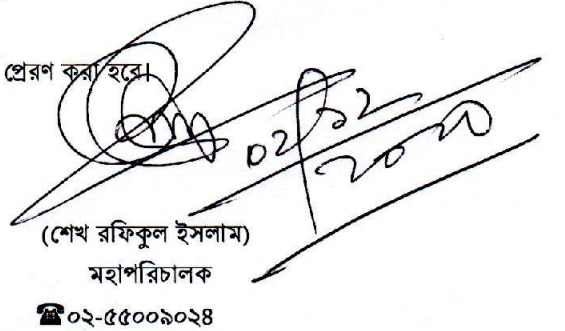 প্রেরণ করা হবে।
০২/১২
২০২০
(শেখ রফিকুল ইসলাম)
মহাপরিচালক
☎০২-৫৫০০৯০২৪